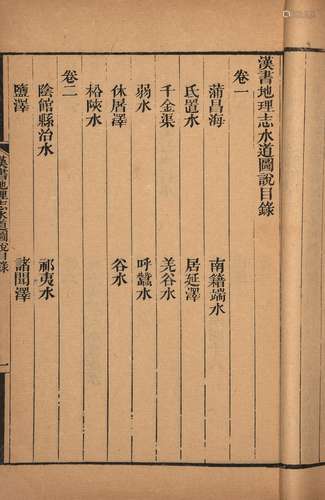 漢書地理志水道圖說目錄
卷一
蒲昌海 南籍端水
氐置水 居延澤
千金渠 羌谷水
弱水 呼蠶水
休屠澤 谷水
松陝水
卷二
陰館縣治水 祁夷水
鹽澤 諸聞澤
漢書地理志水道圖說目錄